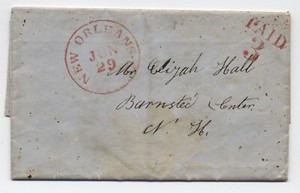 NEW ORLEANS
JUN
29
PAID
3
Mr Elijah Hall
Barnsted Center
N. H.